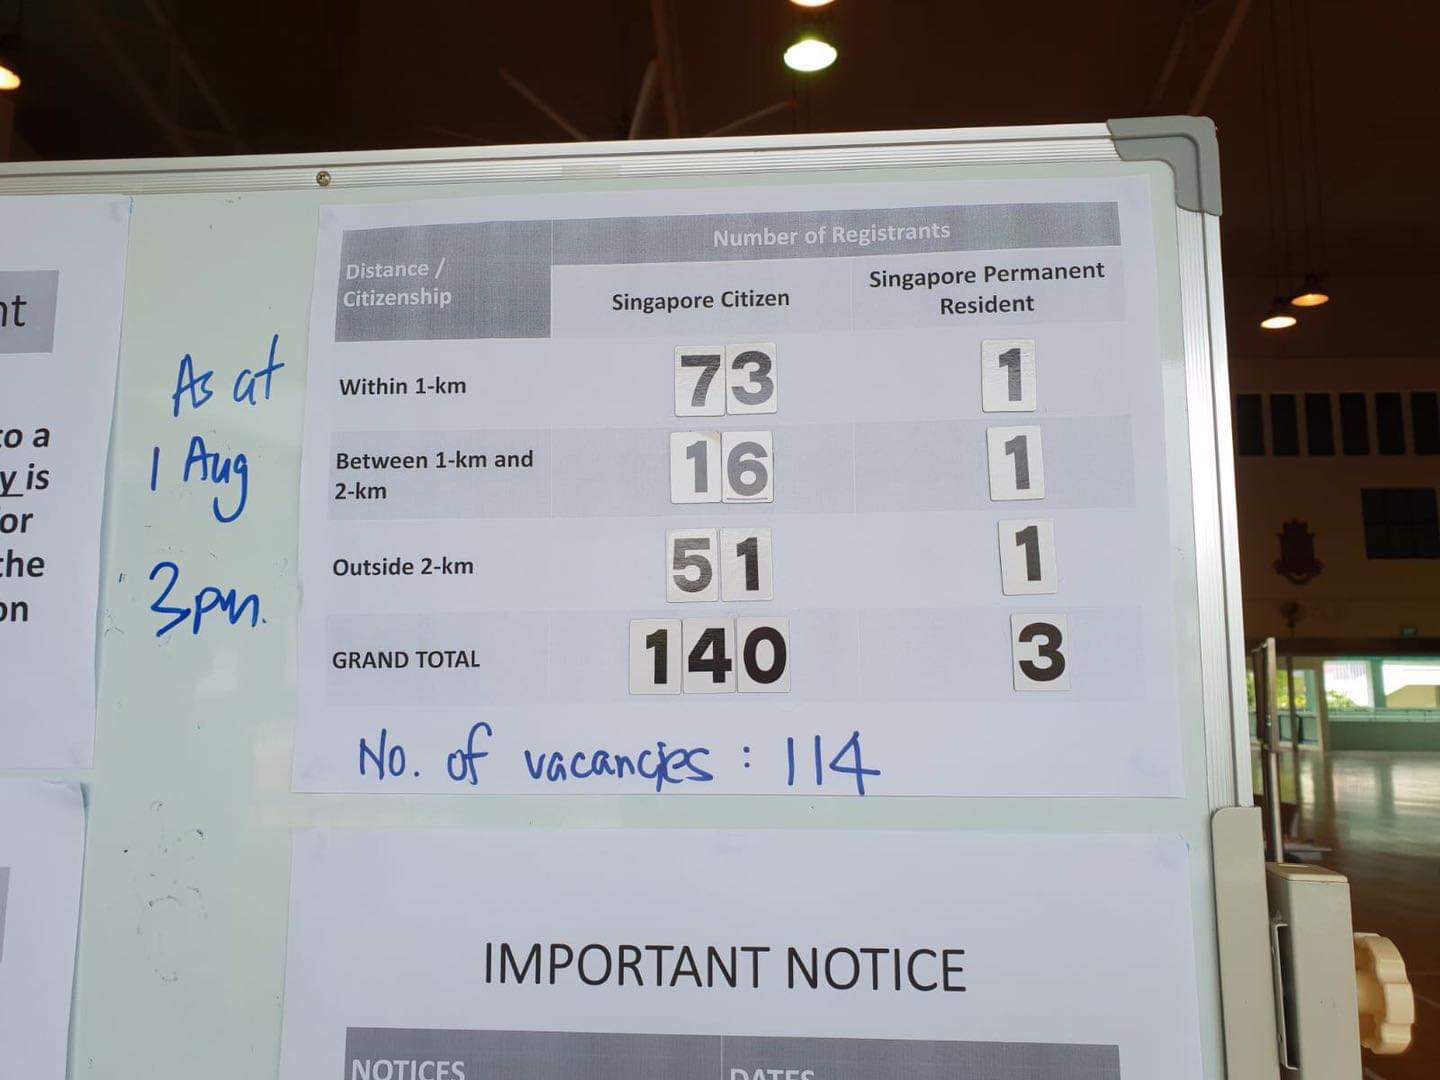 nt
to a
y is
for
the
on
As at
1 Aug
3pm.
Distance /
Citizenship
Number of Registrants
Singapore Citizen
Singapore Permanent
Resident
Within 1-km
73
1
Between 1-km and
2-km
16
1
Outside 2-km
51
1
GRAND TOTAL
140
3
No. of vacancies : 114
IMPORTANT NOTICE
NOTICES
DATES